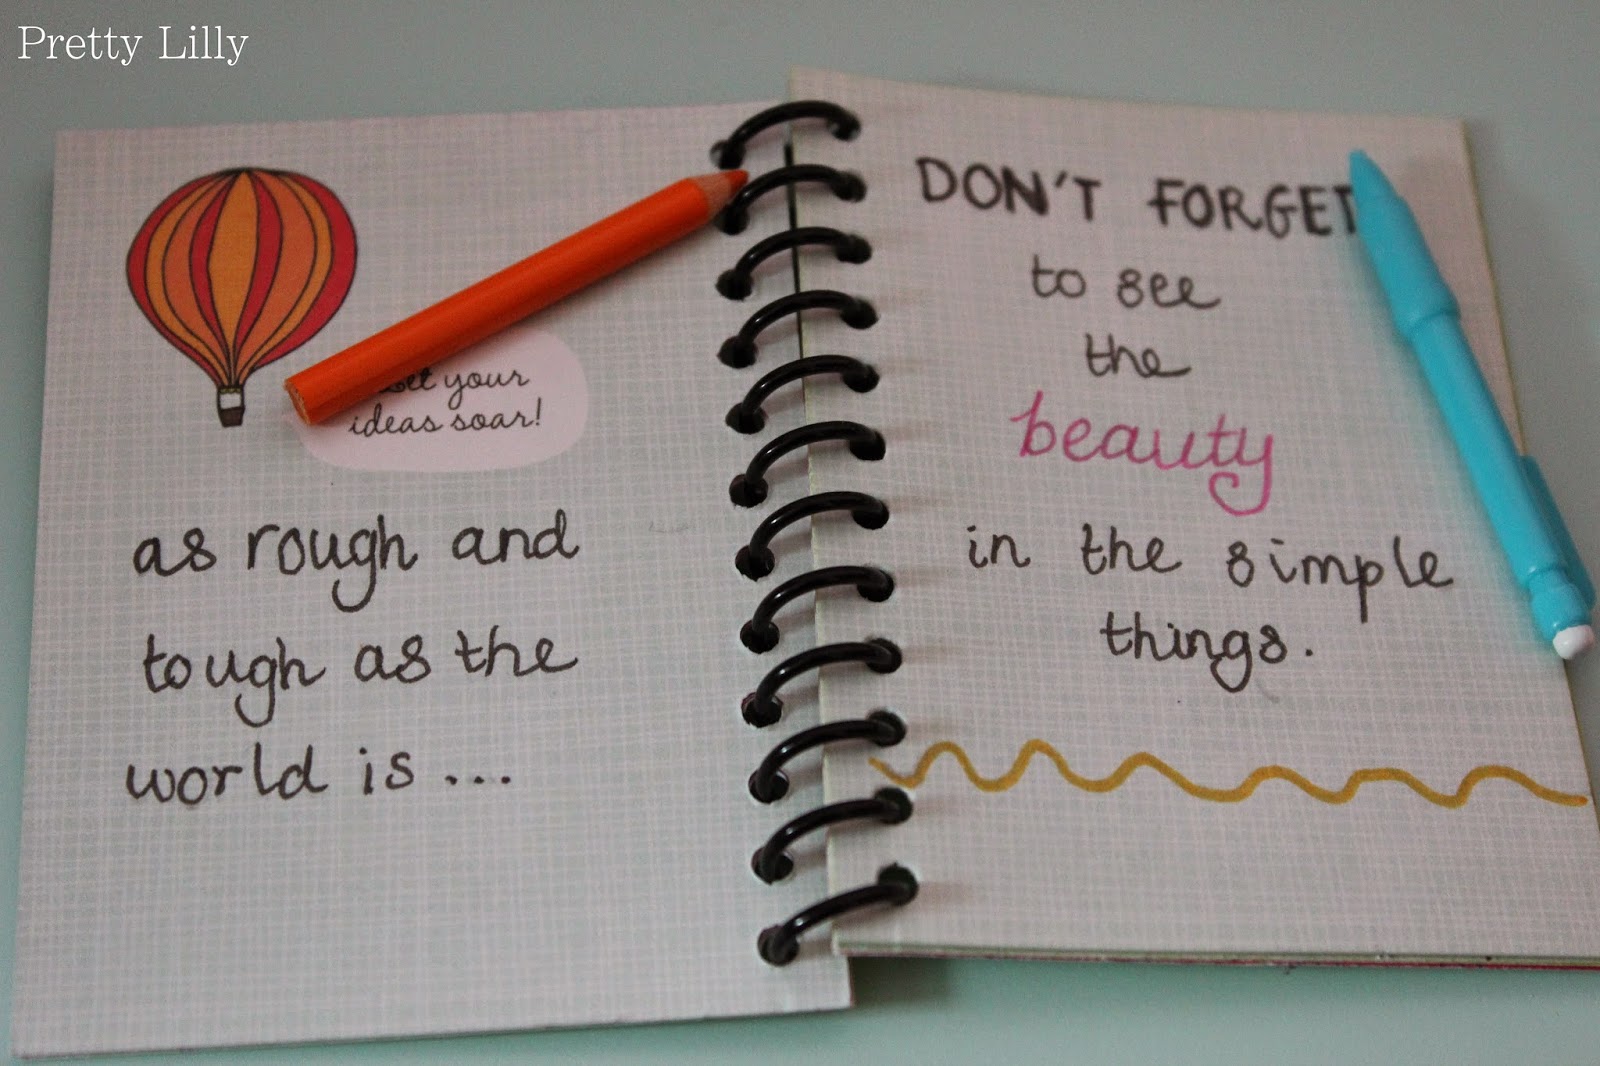 Pretty Lilly
Let your
ideas soar!
as rough and
tough as the
world is...
DON'T FORGET
to see
the
beauty
in the simple
things.